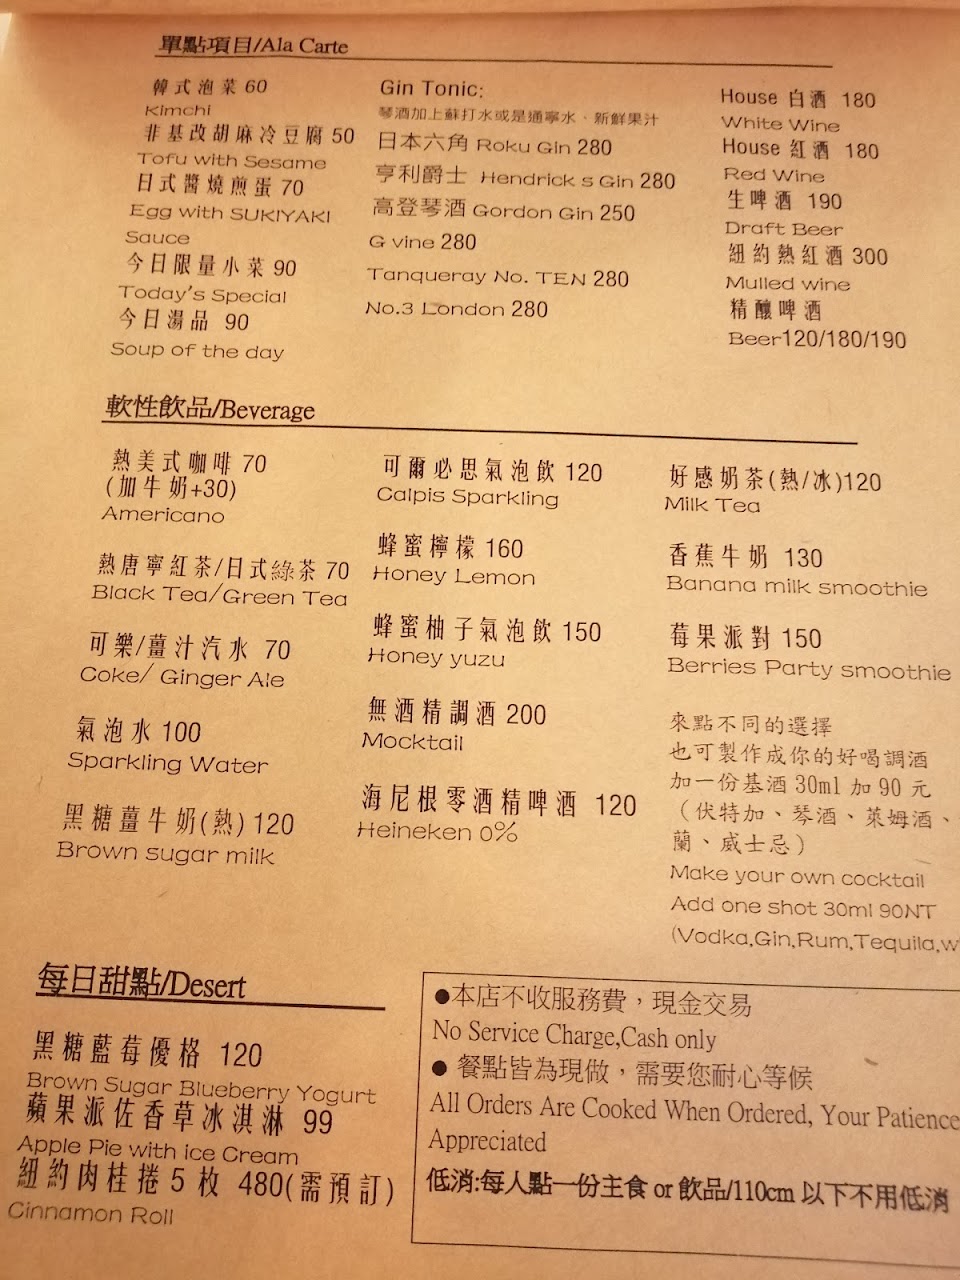 單點項目/Ala Carte
韓式泡菜 60
Kimchi
非基改胡麻冷豆腐 50
Tofu with Sesame
日式醬燒煎蛋 70
Egg with SUKIYAKI
Sauce
今日限量小菜 90
Today's Special
今日湯品 90
Soup of the day
Gin Tonic:
琴酒加上蘇打水或是通寧水、新鮮果汁
日本六角 Roku Gin 280
亨利爵士 Hendrick s Gin 280
高登琴酒 Gordon Gin 250
G vine 280
Tanqueray No. TEN 280
No.3 London 280
House 白酒 180
White Wine
House 紅酒 180
Red Wine
生啤酒 190
Draft Beer
紐約熱紅酒 300
Mulled wine
精釀啤酒
Beer120/180/190
軟性飲品/Beverage
熱美式咖啡 70
(加牛奶+30)
Americano
熱唐寧紅茶/日式綠茶 70
Black Tea/Green Tea
可樂/薑汁汽水 70
Coke/ Ginger Ale
氣泡水 100
Sparkling Water
黑糖薑牛奶(熱) 120
Brown sugar milk
可爾必思氣泡飲 120
Calpis Sparkling
蜂蜜檸檬 160
Honey Lemon
蜂蜜柚子氣泡飲 150
Honey yuzu
無酒精調酒 200
Mocktail
海尼根零酒精啤酒 120
Heineken 0%
好感奶茶(熱/冰)120
Milk Tea
香蕉牛奶 130
Banana milk smoothie
莓果派對 150
Berries Party smoothie
來點不同的選擇
也可製作成你的好喝調酒
加一份基酒 30ml 加 90 元
（伏特加、琴酒、萊姆酒、
蘭、威士忌）
Make your own cocktail
Add one shot 30ml 90NT
(Vodka,Gin,Rum,Tequila,w
每日甜點/Desert
黑糖藍莓優格 120
Brown Sugar Blueberry Yogurt
蘋果派佐香草冰淇淋 99
Apple Pie with ice Cream
紐約肉桂捲 5 枚 480(需預訂)
Cinnamon Roll
●本店不收服務費，現金交易
No Service Charge,Cash only
● 餐點皆為現做，需要您耐心等候
All Orders Are Cooked When Ordered, Your Patience
Appreciated
低消:每人點一份主食 or 飲品/110cm 以下不用低消